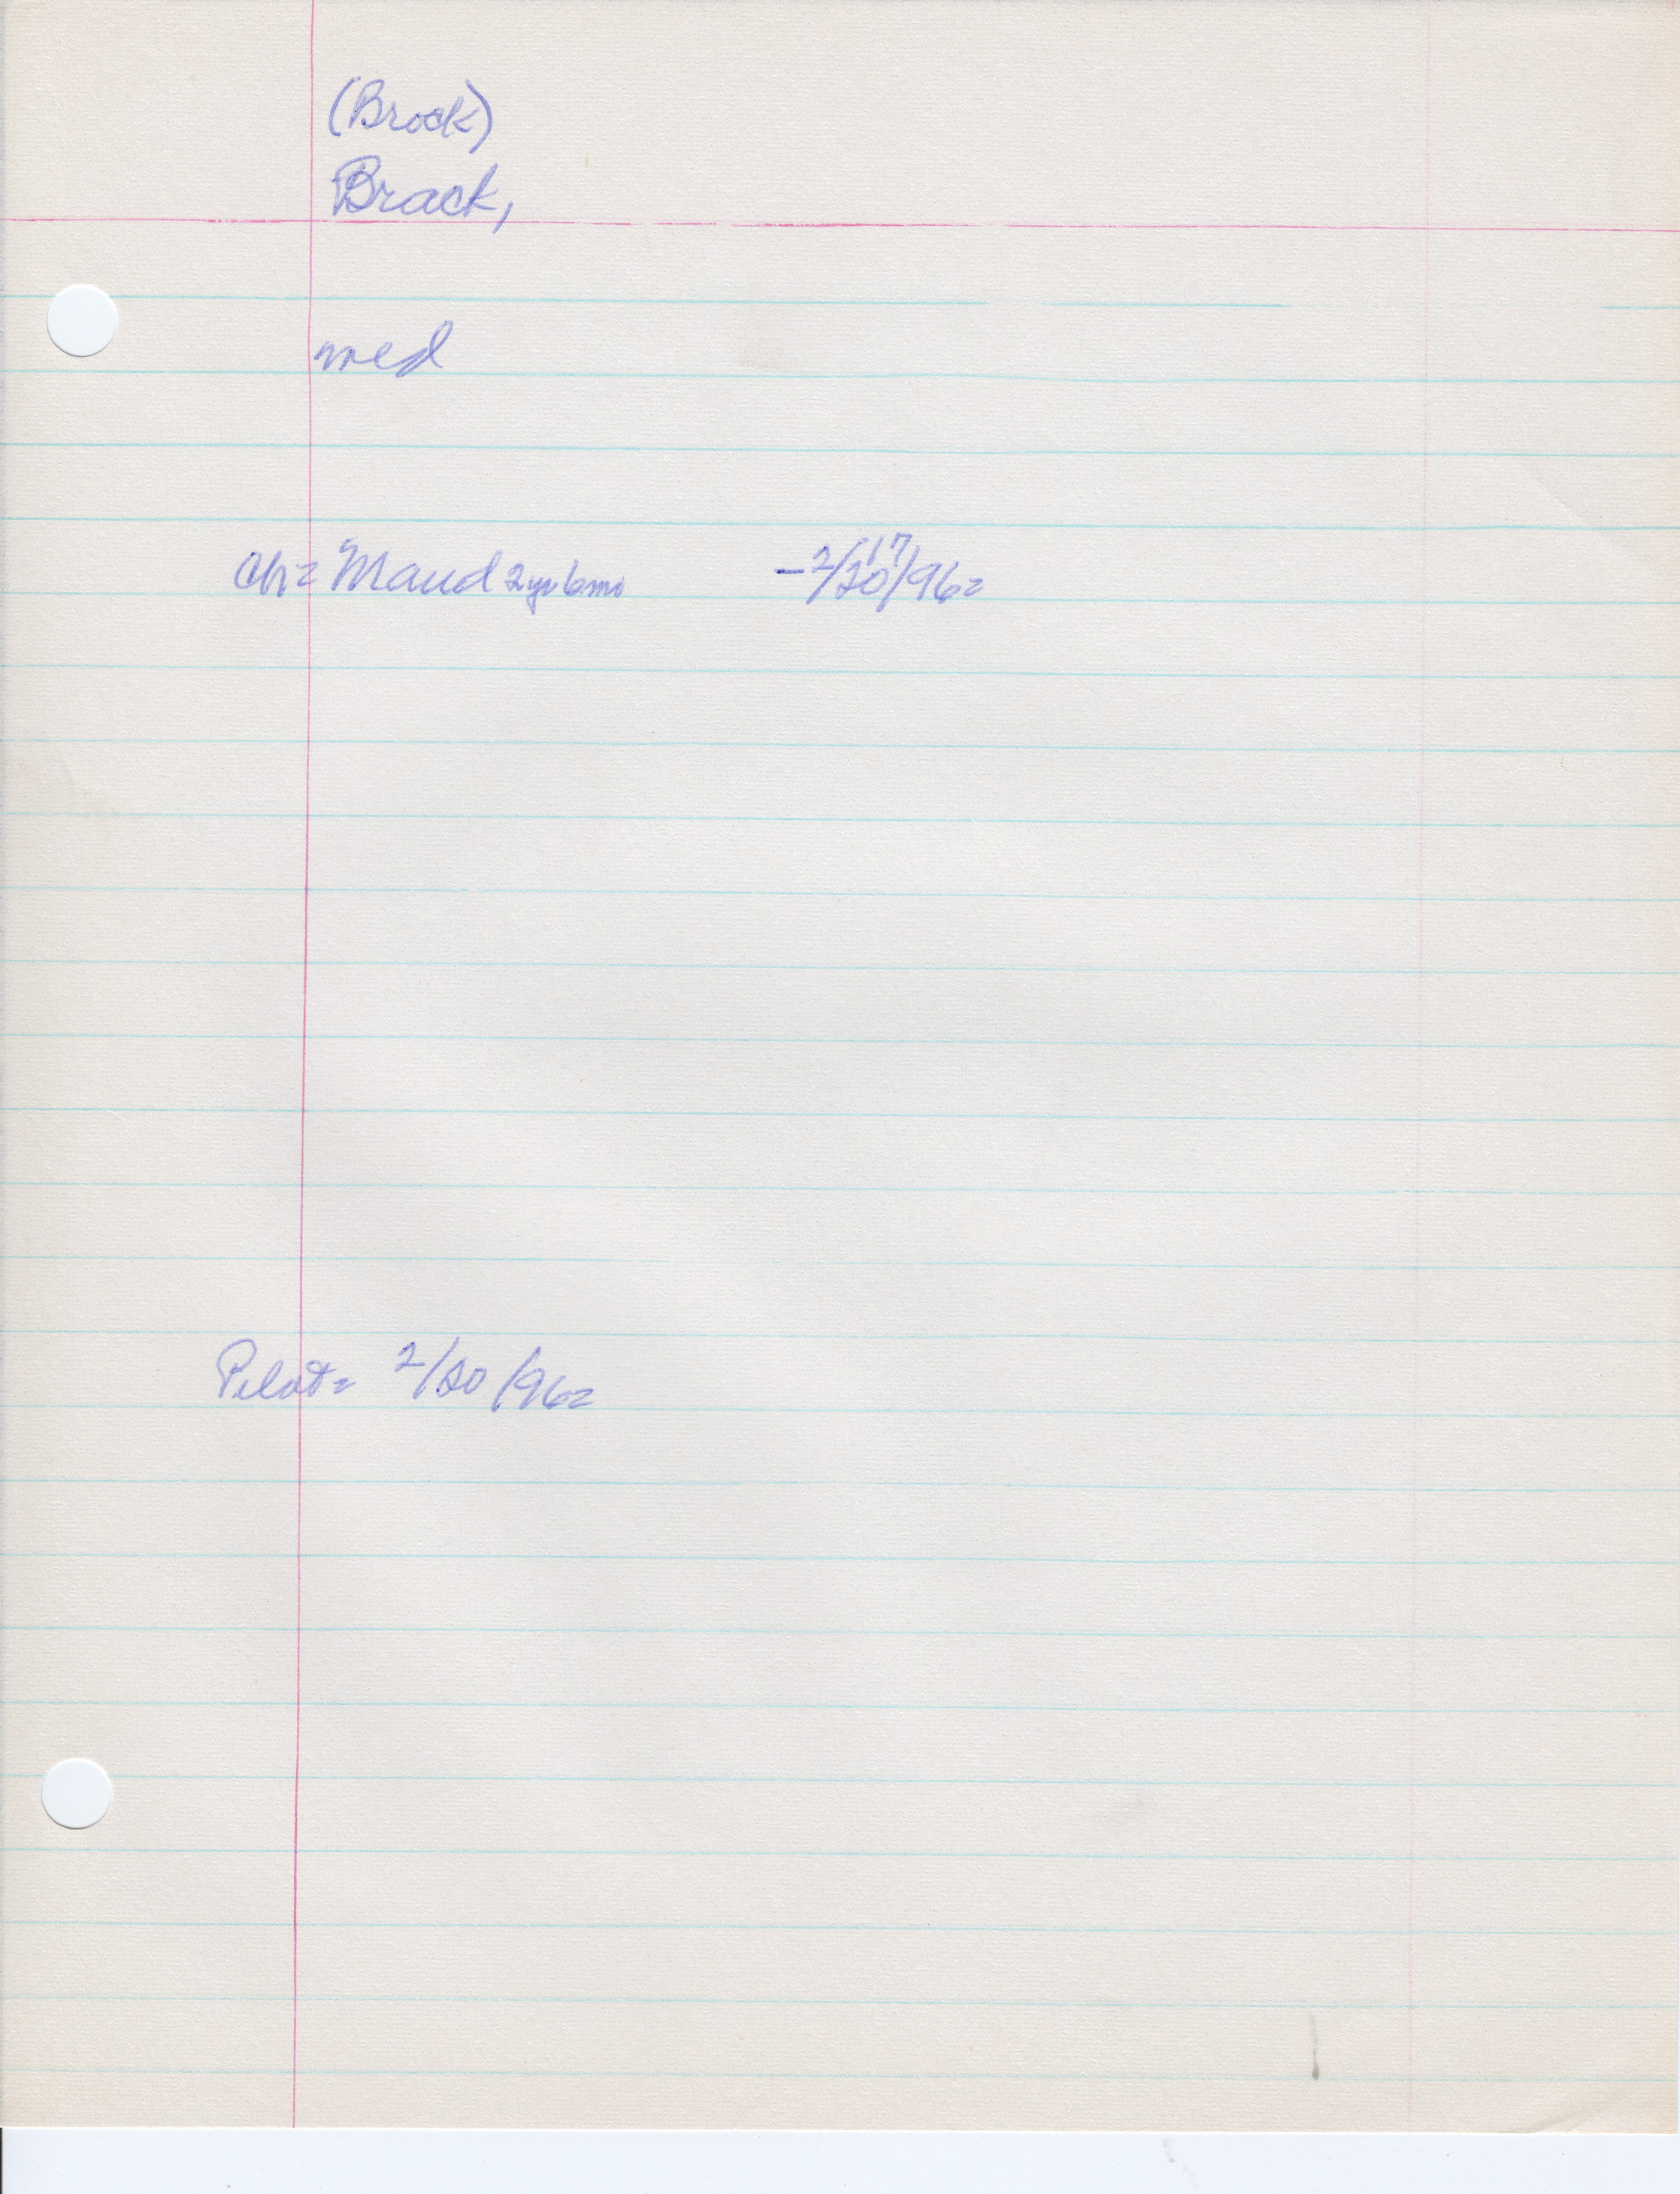 (Brock)
Brack,
med
Ch= Maud 2 yr 6 mo -2/17/20/96=
Pilot= 2/20/96=